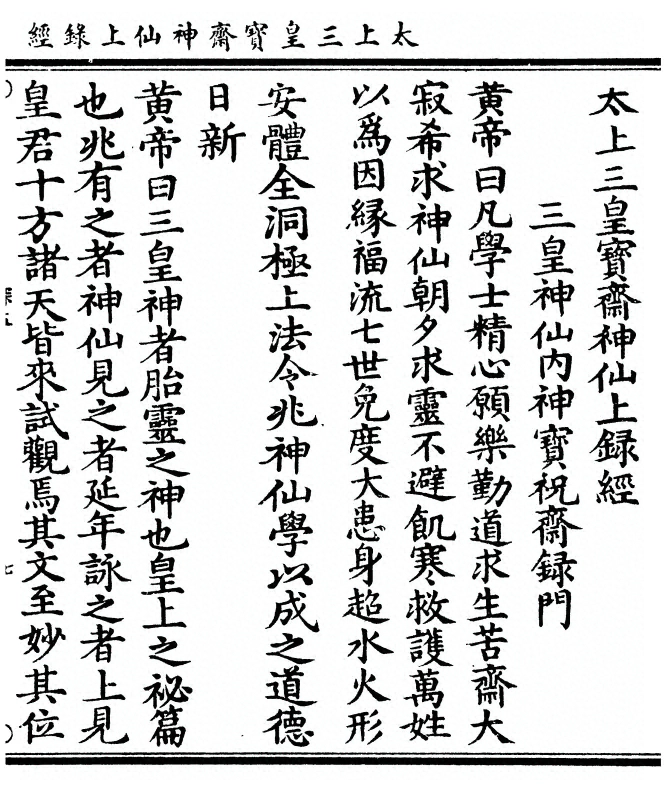 太上三皇寶齋神仙上錄經
太上三皇寶齋神仙上録經
三皇神仙內神寶祝齋録門
黃帝曰凡學士精心願樂勤道求生苦齋大
寂希求神仙朝夕求靈不避飢寒救護萬姓
以爲因縁福流七世免度大患身超水火形
安體全洞極上法令兆神仙學以成之道德
日新
黃帝曰三皇神者胎靈之神也皇上之祕篇
也兆有之者神仙見之者延年詠之者上見
皇君十方諸天皆來試觀焉其文至妙其位
七